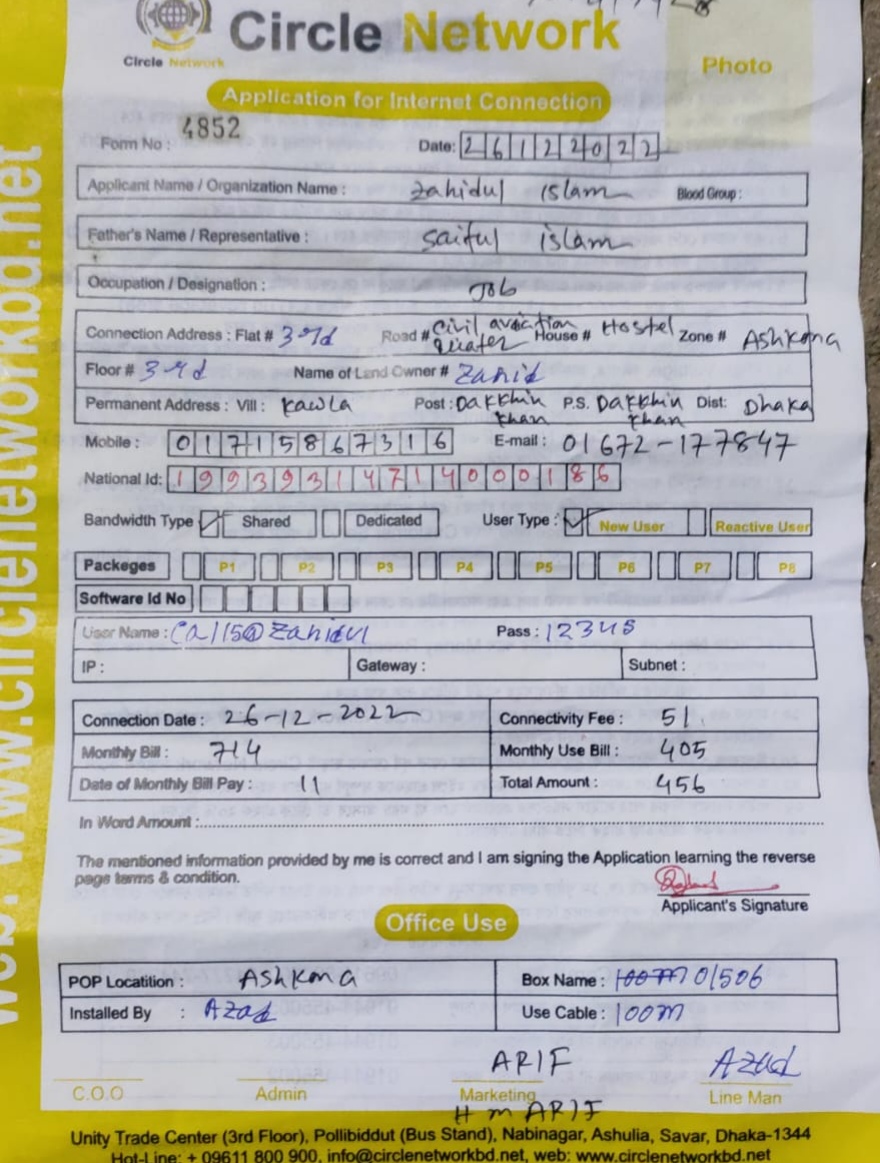 Circle Network
Circle Network
Photo
Application for Internet Connection
Form No : 4852 Date: 26122022
Applicant Name / Organization Name : Zahidul islam Blood Group :
Father's Name / Representative : saiful islam
Occupation / Designation : Job
Connection Address : Flat # 3rd Road # Civil aviation House # Hostel Zone # Ashkona
Floor # 3rd Name of Land Owner # Zahid
Permanent Address : Vill : kawla Post : Dakkhin khan P.S. Dakkhin khan Dist: Dhaka
Mobile : 01715867316 E-mail : 01672-177847
National Id: 19939314714000186
Bandwidth Type Shared Dedicated User Type : New User Reactive User
Packeges P1 P2 P3 P4 P5 P6 P7 P8
Software Id No
User Name : Pass : 12345
IP : Gateway : Subnet :
Connection Date : 26-12-2022 Connectivity Fee : 51
Monthly Bill : 714 Monthly Use Bill : 405
Date of Monthly Bill Pay : 11 Total Amount : 456
In Word Amount :
The mentioned information provided by me is correct and I am signing the Application learning the reverse
page terms & condition.
Applicant's Signature
Office Use
POP Locatition : Ashkona Box Name : 01506
Installed By : Azad Use Cable : 100m
ARIF Azad
C.O.O Admin Marketing Line Man
H m ARIF
Unity Trade Center (3rd Floor), Pollibiddut (Bus Stand), Nabinagar, Ashulia, Savar, Dhaka-1344
Hot-Line: + 09611 800 900, info@circlenetworkbd.net, web: www.circlenetworkbd.net
web: www.circlenetworkbd.net